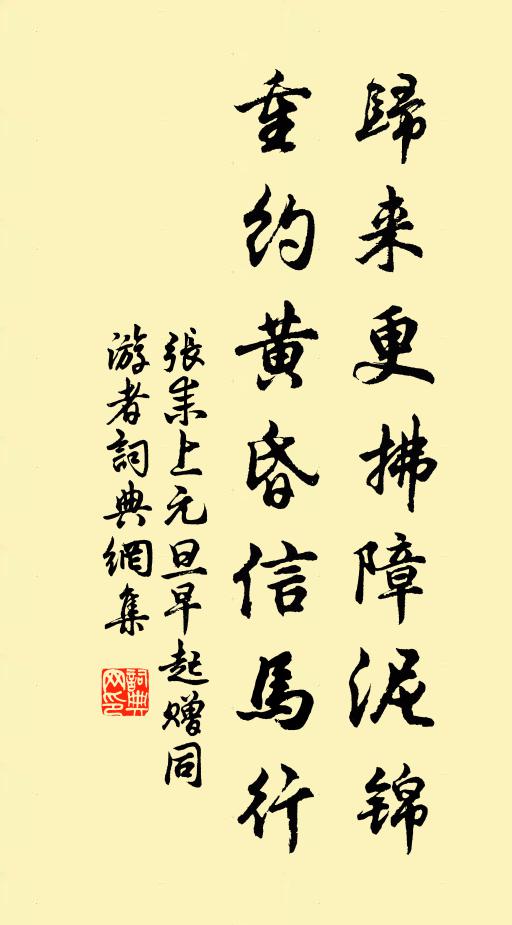 歸来更拂障泥錦
重約黃昏信馬行
張耒上元旦早起贈同
游者詞典網集
詞典
网印